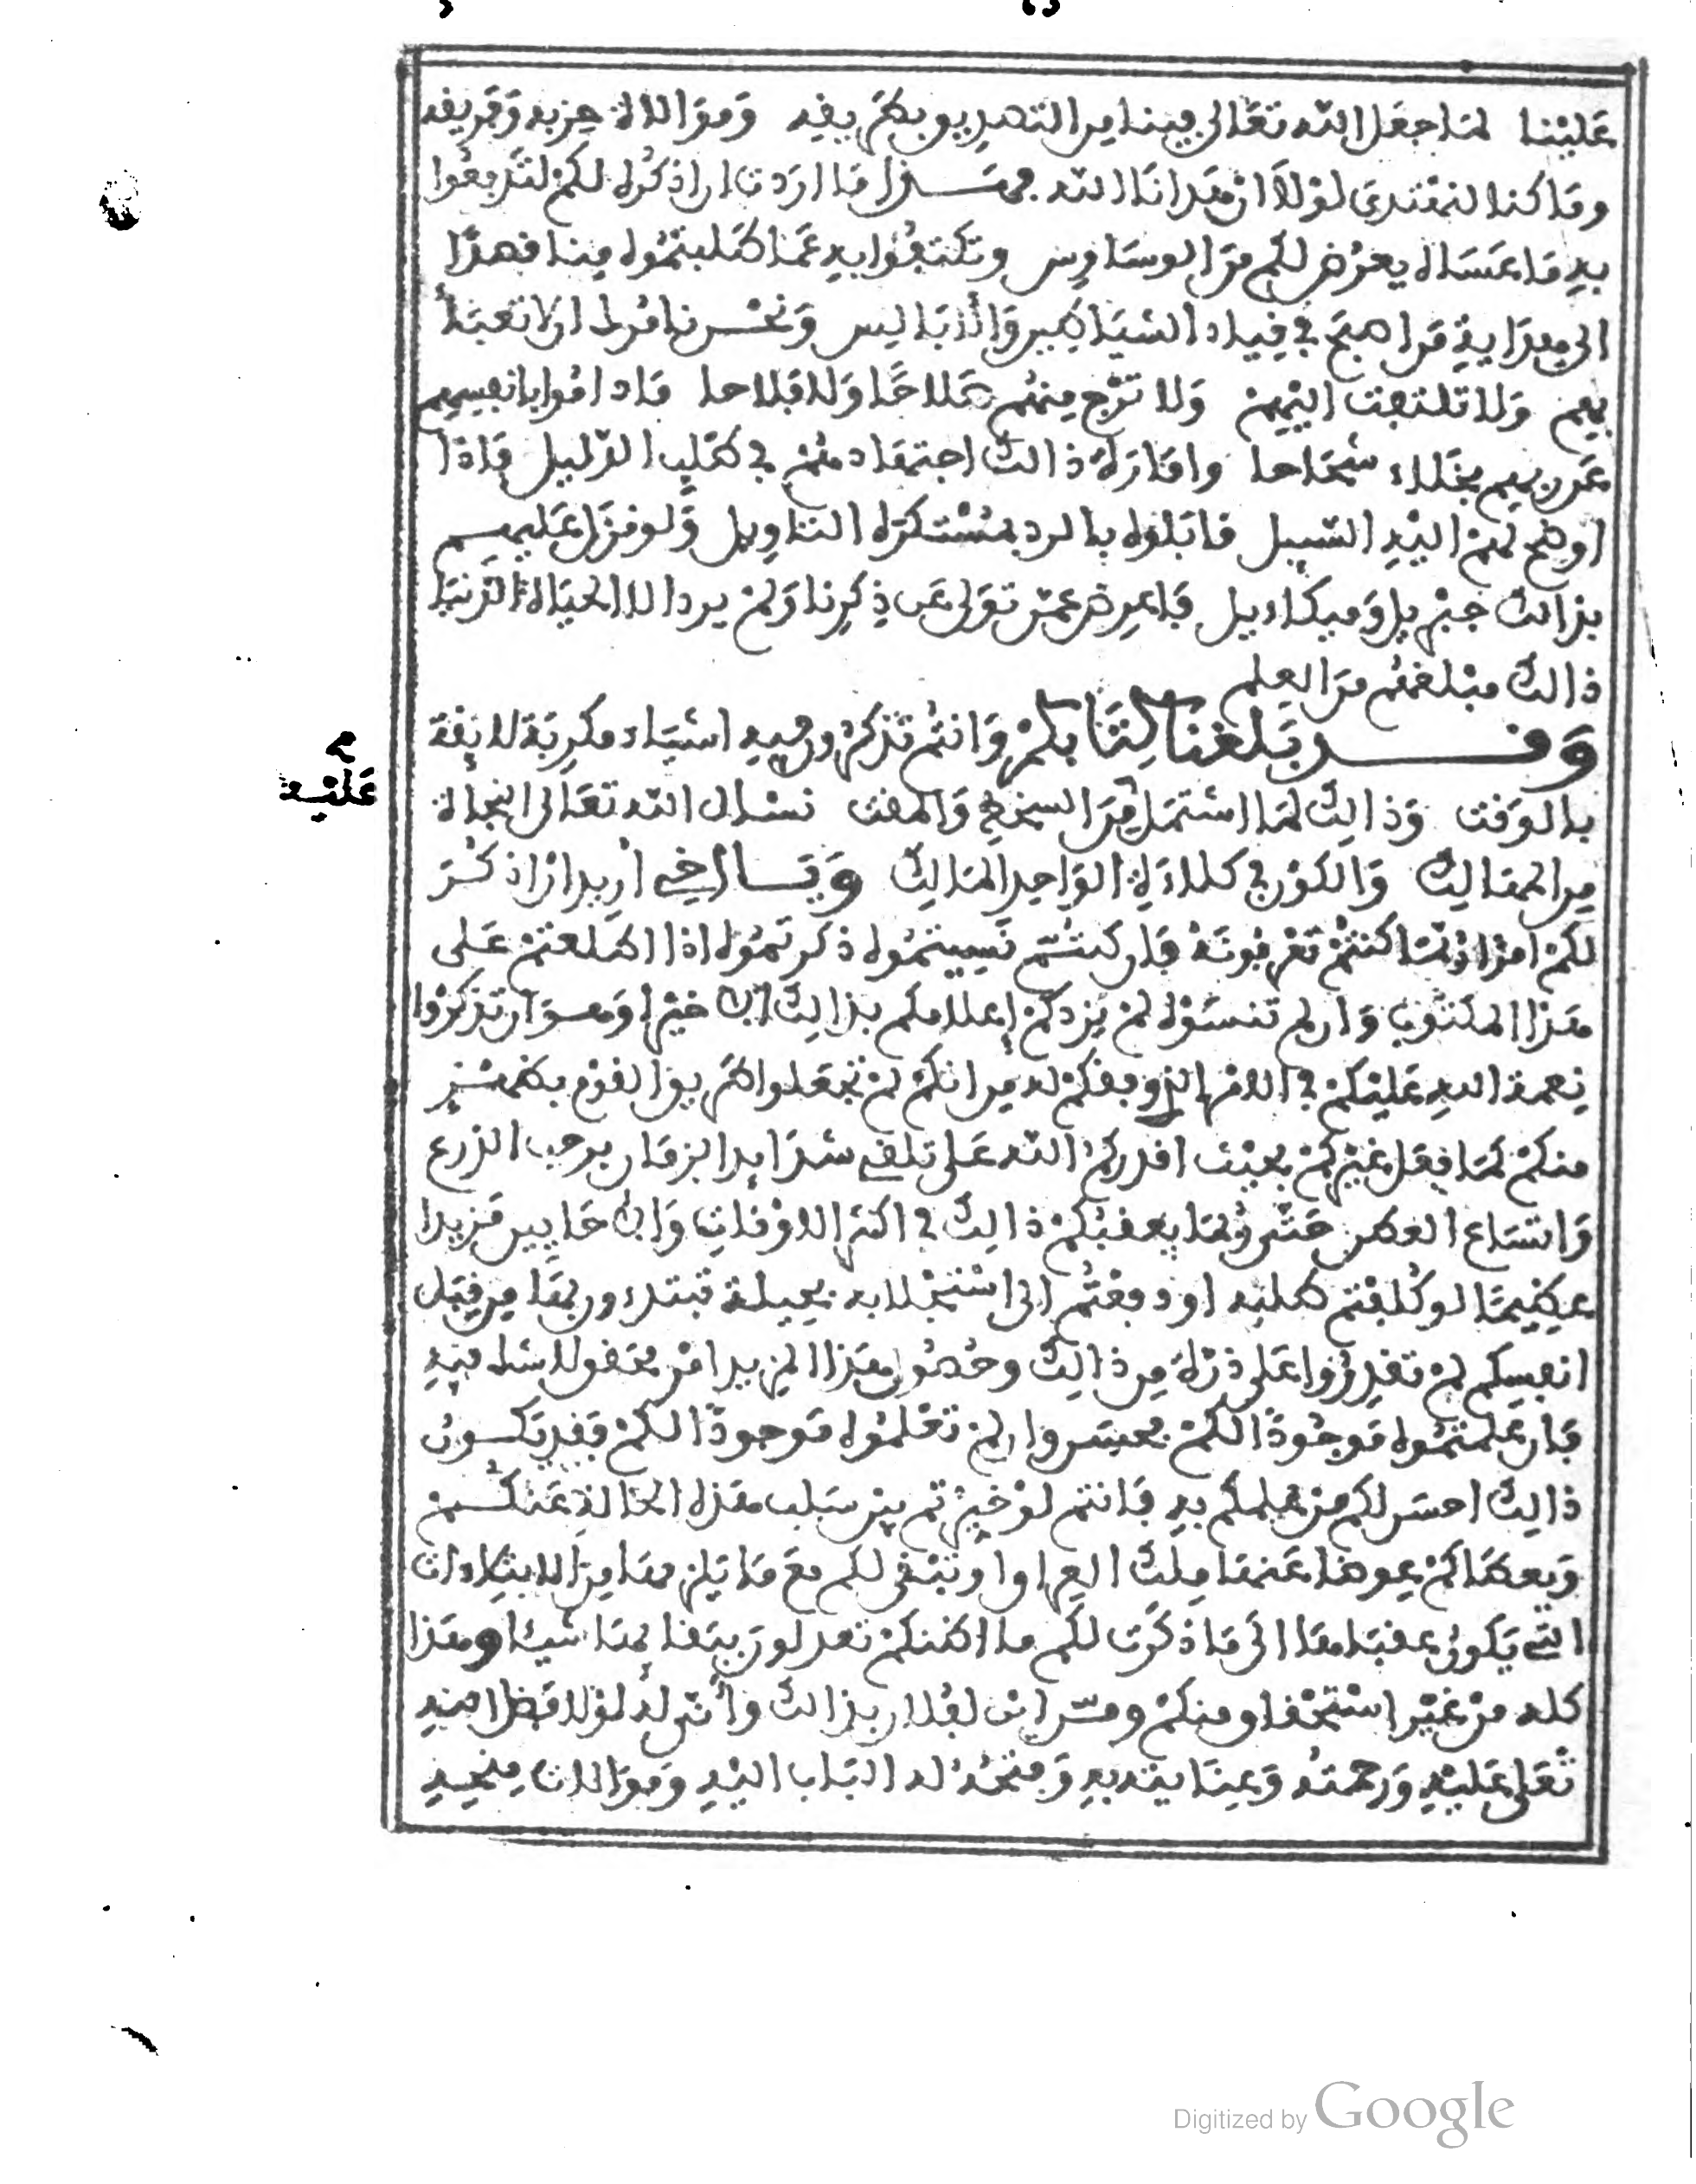 علينا لما جعل الله تعالى بيننا من التصديق بطريقه وموالاة حزبه وفريقه
وما كنا لنهتدي لولا ان هدانا الله فهذا ما اردت ان اذكره لكم لتدفعوا
به ما عساه يعرض لكم من الوساوس وتكتفوا به عما طلبتموه منا قصدا
الى هداية من اصبح في قياد الشياطين والاباليس ونحن نامركم ان لا تعبأ
بهم ولا تلتفت اليهم ولا ترج منهم صلاحا ولا فلاحا ما داموا بانفسهم
عن ربهم بخلاء شحاحا وامارة ذالك اجتهادهم في طلب الدليل فاذا
اوضح لهم اليه السبيل قابلوه بالرد بمستكره التاويل ولو نزل عليهم
بذالك جبريل وميكاءيل فاعرض عمن تولى عن ذكرنا ولم يرد الا الحياة الدنيا
ذالك مبلغهم من العلم
وقد بلغنا كتابكم وانتم تذكرون فيه اشياء مكربة لائقة
بالوقت وذالك لما اشتمل من السخط والمقت نسئل الله تعالى النجاة
عليه
من المهالك والكون في كلاءة الواحد المالك ويا اخي اريد ان اذكر
لكم امرا ربما كنتم تعرفونه فان كنتم نسيتموه ذكرتموه اذا اطلعتم على
هذا المكتوب وان لم تنسوه لم يزدكم إعلامكم بذالك الا خيرا وهو ان تذكروا
نعمة الله عليكم في الامر الذي وفقكم له من انكم لم تجعلوا طريق القوم بظهر
منكم كما فعل غيركم بحيث اقدركم الله على تلقي شدايد الزمان برحب الذرع
واتساع العطن حتى ربما يعقبكم ذالك في اكثر الاوقات والاحايين مزيدا
عظيما لو كلفتم طلبه او دفعتم الى استجلابه بحيلة تبتدءونها من قبل
انفسكم لم تقدروا على ذرة من ذالك وحصول هذا المزيد امر محقق لا شك فيه
فان علمتموه موجودا لكم فحسن وان لم تعلموه موجودا لكم فقد يكون
ذالك احسن لكم من علمكم به فانتم لو خيرتم بين سلب هذه الحالة عنكم
ويعطاكم عوضا عنها ملك العراق وتبقى لكم مع ما يلزمها من الابتلاءات
التي يكون عقباها الى ما ذكرت لكم ما اظنكم تعدلون ببقائها شيئا وهذا
كله من غير استحقاق منكم ومن اين لفلان بذالك وأنى له لولا فضل الله
تعلى عليه ورحمته وعنايته به وفتحه له الباب اليه وموالات منحه